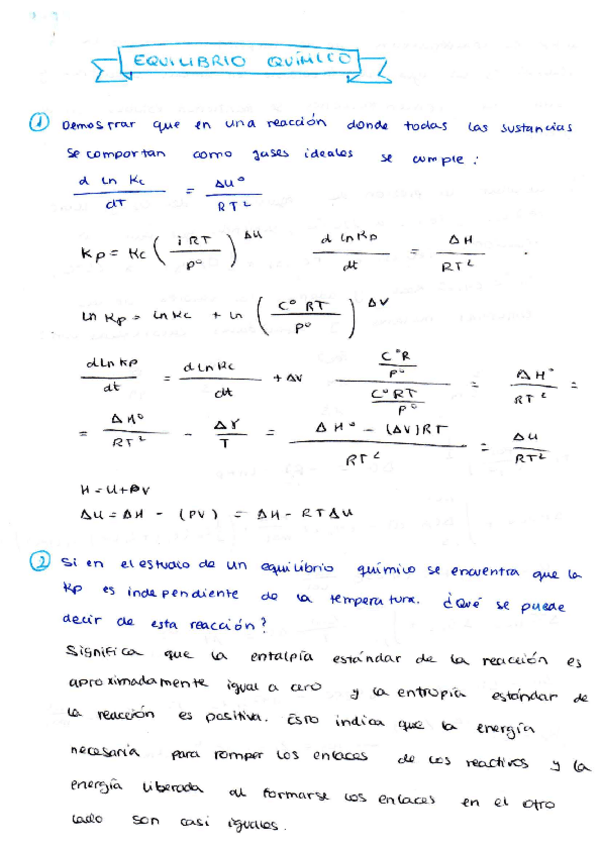 EQUILIBRIO QUÍMICO
① Demostrar que en una reacción donde todas las sustancias
se comportan como gases ideales se cumple:
d ln Kc / dT = ΔU° / RT²
Kp = Kc ( i RT / P° )^Δν    d ln Kp / dt = ΔH / RT² .
ln Kp = ln Kc + ln ( C° RT / P° )^ΔV
d Ln Kp / dt = d Ln Kc / dt + ΔV (C°R / P°) / (C°RT / P°) = ΔH° / RT² =
= ΔH° / RT² - Δγ / T = ΔH° - (ΔV)RT / RT² = ΔU / RT²
H = U + PV
ΔU = ΔH - (PV) = ΔH - RTΔU
② Si en el estudio de un equilibrio químico se encuentra que la
Kp es independiente de la temperatura. ¿Qué se puede
decir de esta reacción?
Significa que la entalpía estándar de la reacción es
aproximadamente igual a cero y la entropía estándar de
la reacción es positiva. Esto indica que la energía
necesaria para romper los enlaces de los reactivos y la
energía liberada al formarse los enlaces en el otro
lado son casi iguales.